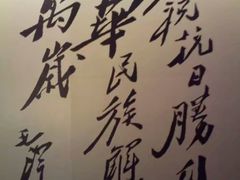 祝抗日勝利
華民族解
萬歲
毛澤